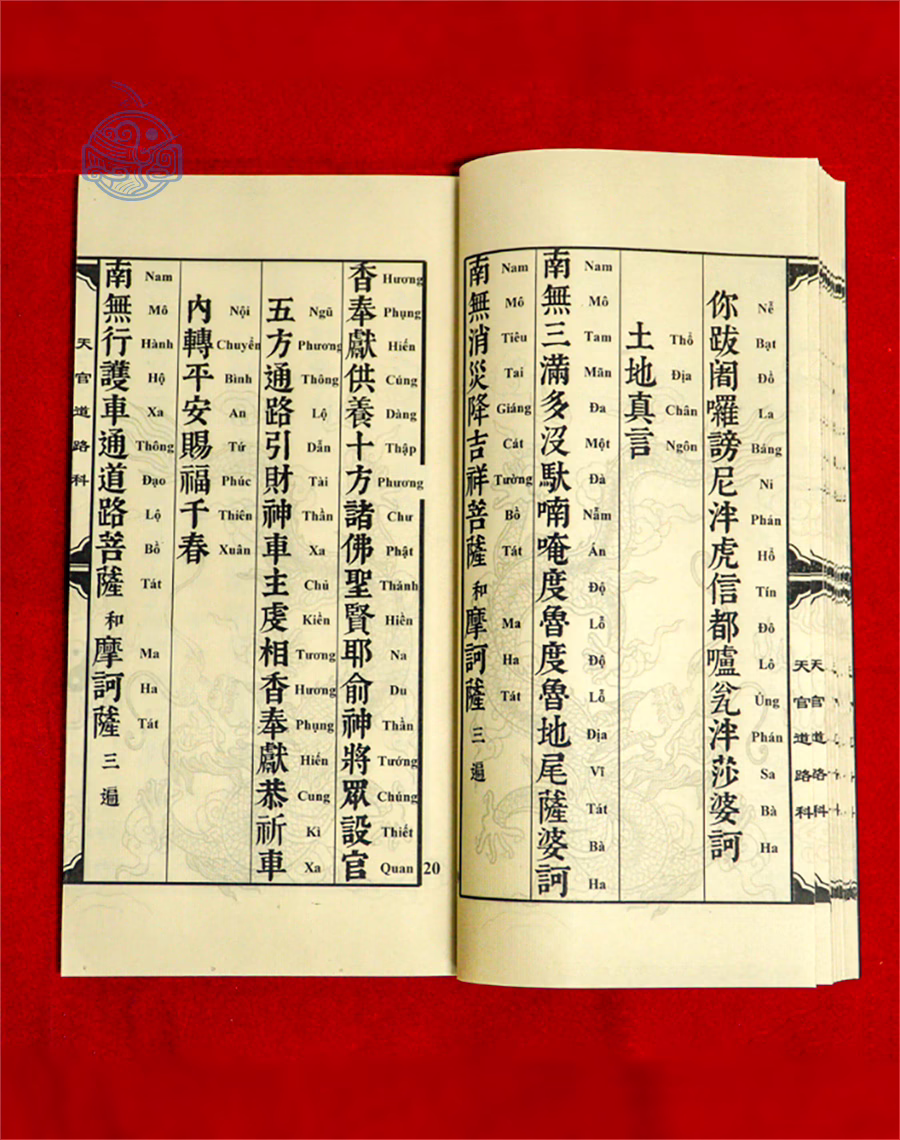 天官道路科
天官道路科
你跋闍囉謗尼泮虎信都嚧瓮泮莎婆訶
Nễ Bạt Đồ La Báng Ni Phán Hổ Tín Đô Lô Úng Phán Sa Bà Ha
土地真言
Thổ Địa Chân Ngôn
南無三滿多沒馱喃唵度魯度魯地尾薩婆訶
Nam Mô Tam Mãn Đa Một Đà Nẫm Án Độ Lỗ Độ Lỗ Địa Vĩ Tát Bà Ha
南無消災降吉祥菩薩 和 摩訶薩 三遍
Nam Mô Tiêu Tai Giáng Cát Tường Bồ Tát Ma Ha Tát
20
香奉獻供養十方諸佛聖賢耶俞神將眾設官
Hương Phụng Hiến Cúng Dàng Thập Phương Chư Phật Thánh Hiền Na Du Thần Tướng Chúng Thiết Quan
五方通路引財神車主虔相香奉獻恭祈車
Ngũ Phương Thông Lộ Dẫn Tài Thần Xa Chủ Kiền Tương Hương Phụng Hiến Cung Kì Xa
內轉平安賜福千春
Nội Chuyển Bình An Tứ Phúc Thiên Xuân
南無行護車通道路菩薩 和 摩訶薩 三遍
Nam Mô Hành Hộ Xa Thông Đạo Lộ Bồ Tát Ma Ha Tát
天官道路科